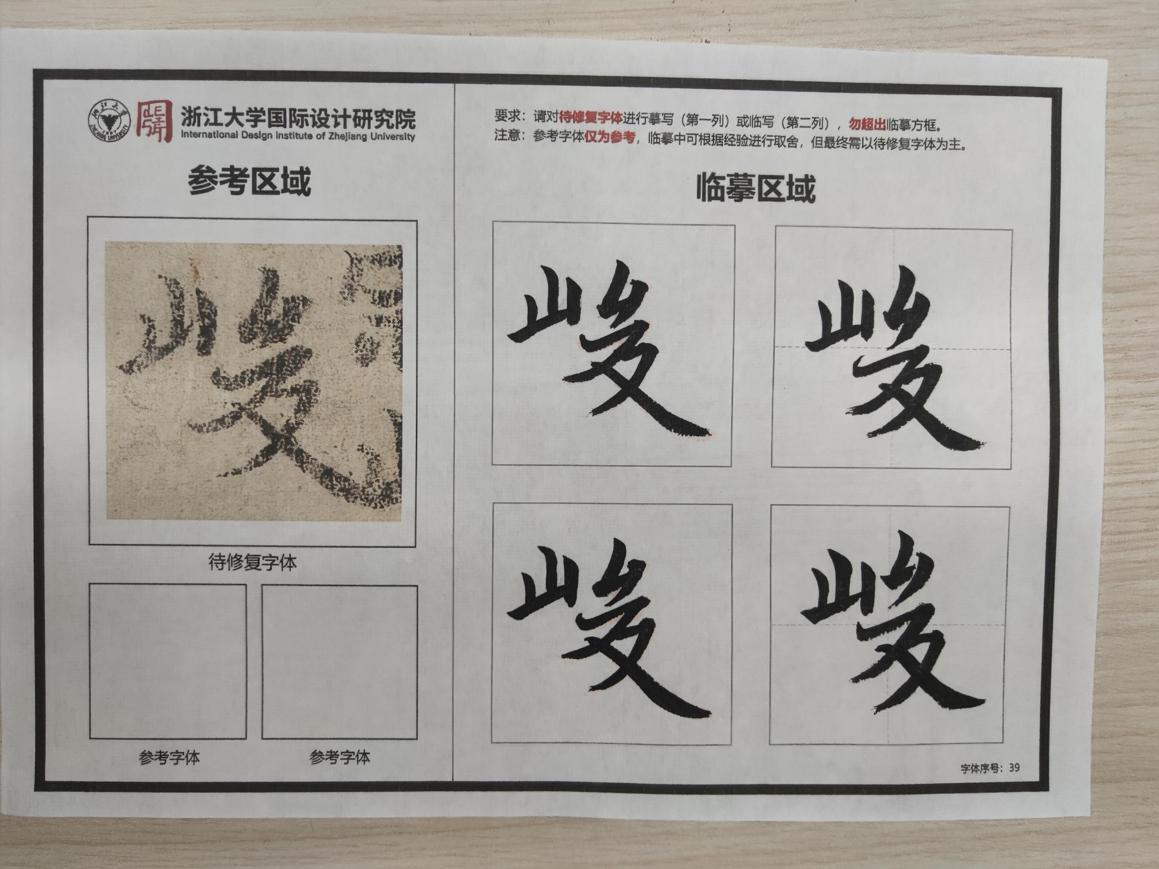 浙江大学国际设计研究院
International Design Institute of Zhejiang University
参考区域
待修复字体
参考字体
参考字体
要求：请对待修复字体进行摹写（第一列）或临写（第二列），勿超出临摹方框。
注意：参考字体仅为参考，临摹中可根据经验进行取舍，但最终需以待修复字体为主。
临摹区域
字体序号：39